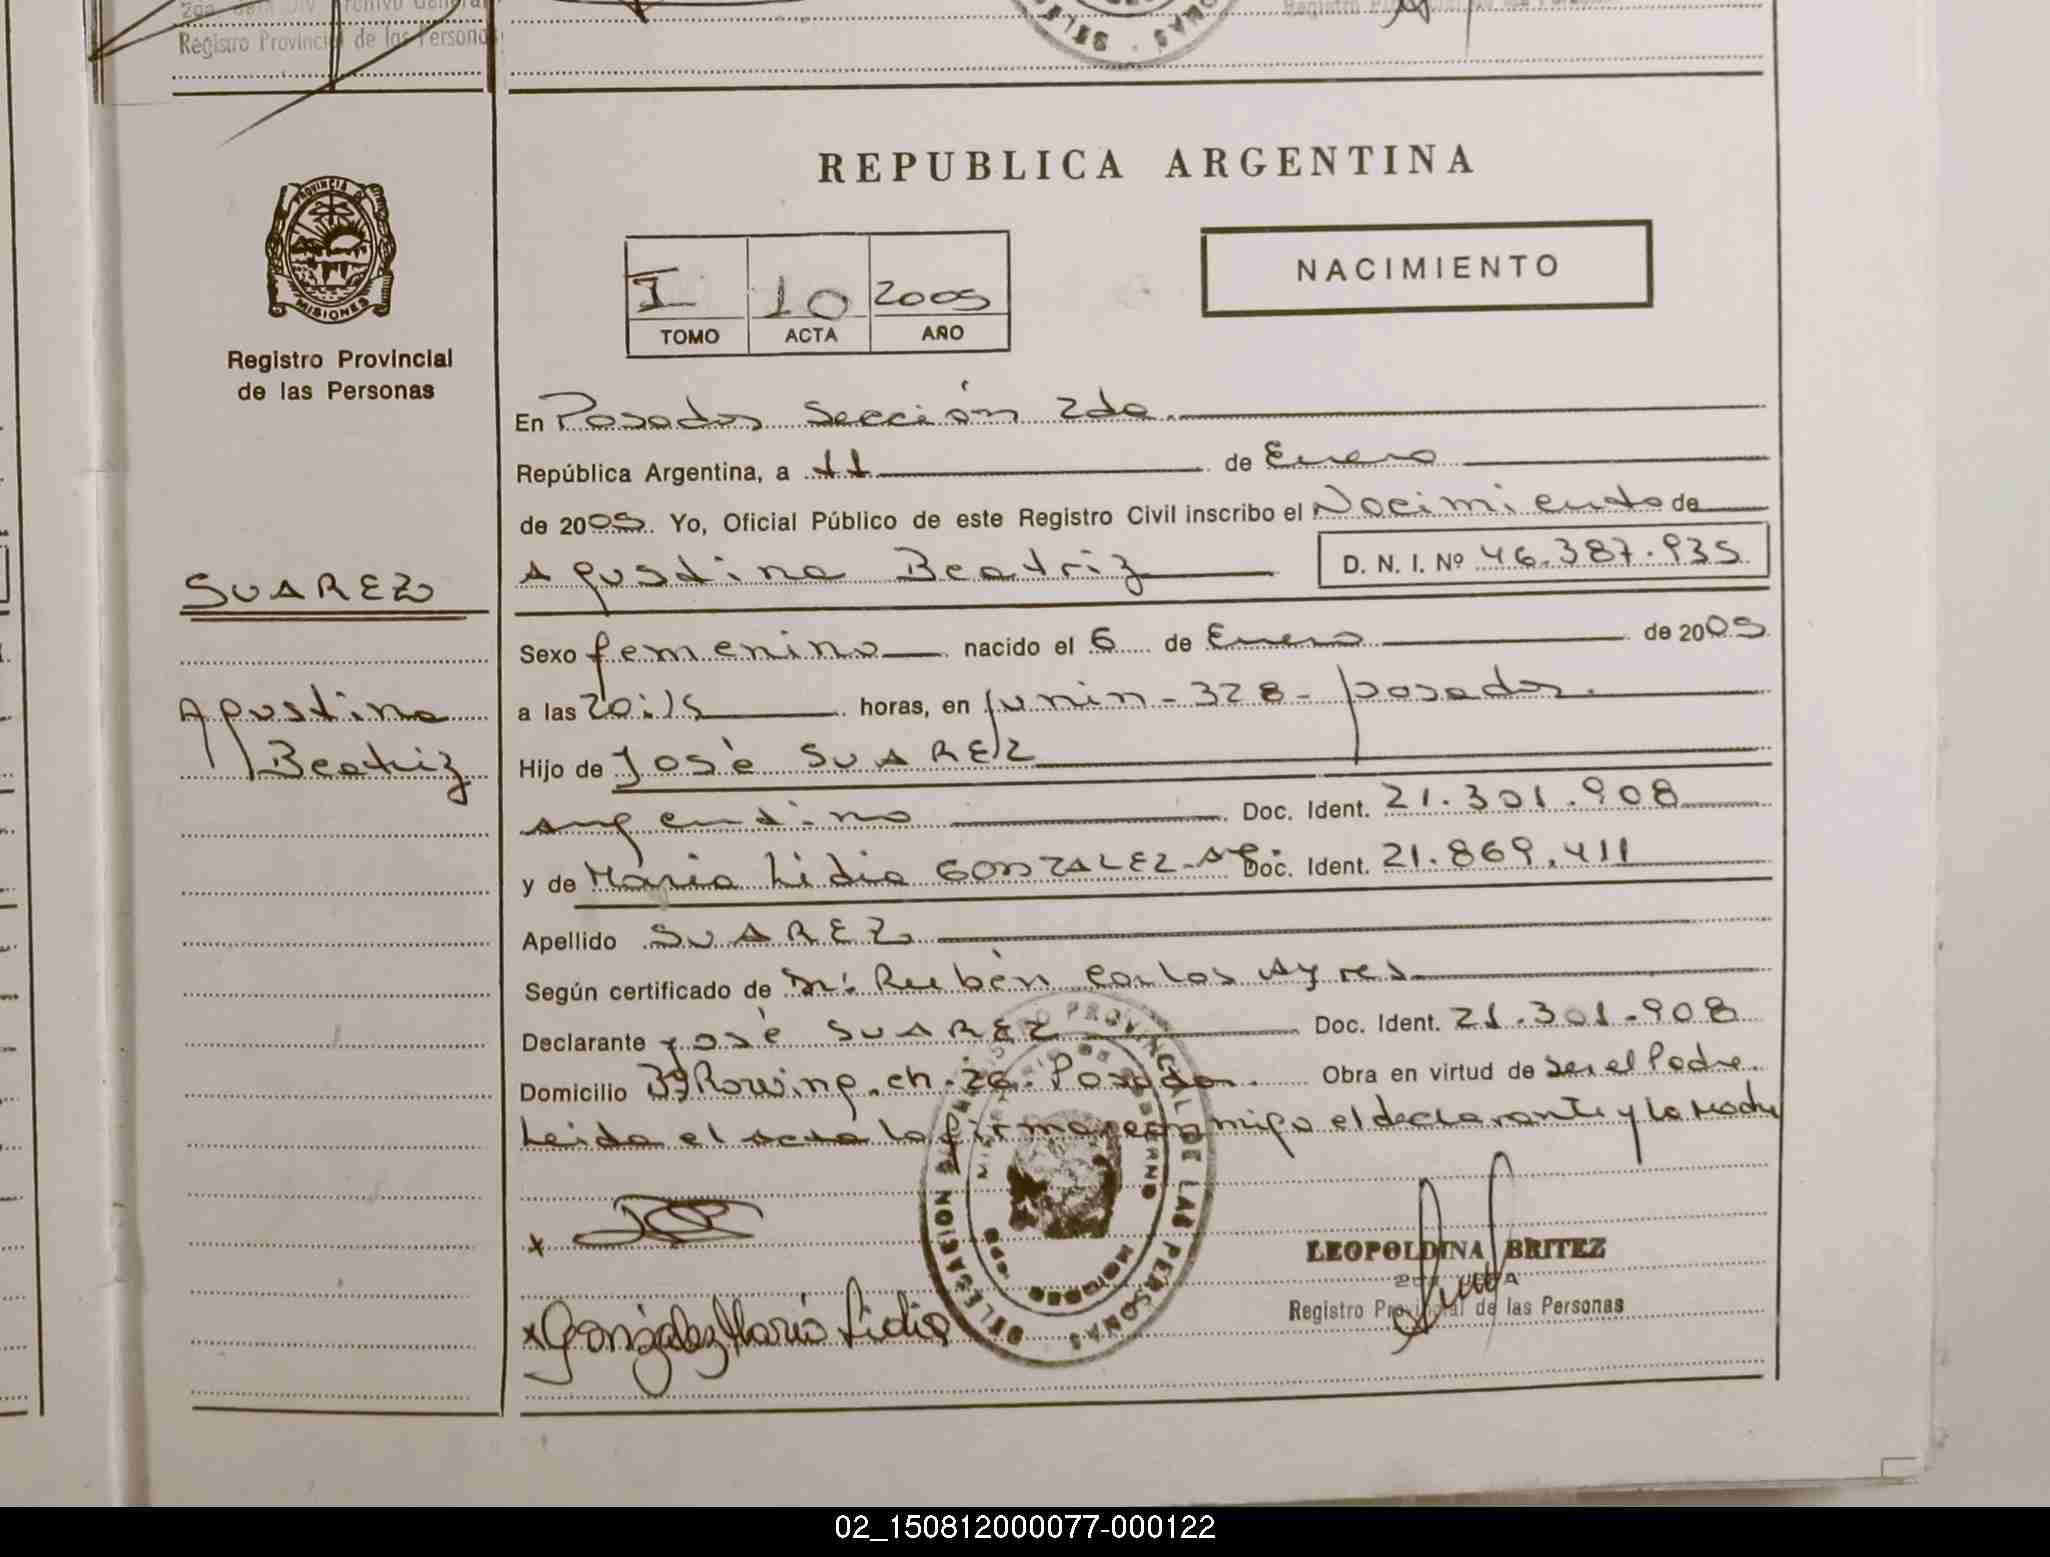 Registro Provincial de las Personas
REPUBLICA ARGENTINA
PROVINCIA DE
MISIONES
Registro Provincial
de las Personas
I 10 2005
TOMO ACTA AÑO
NACIMIENTO
En Posadas Sección 2da.
República Argentina, a 11 de Enero
de 2005. Yo, Oficial Público de este Registro Civil inscribo el Nacimiento de
Agustina Beatriz D. N. I. Nº 46.387.935
SUAREZ
Agustina
Beatriz
Sexo femenino nacido el 6 de Enero de 2005
a las 20:15 horas, en Junin-328-posadas.
Hijo de José SUAREZ
Argentino Doc. Ident. 21.301.908
y de Maria Lidia GONZALEZ-Arg. Doc. Ident. 21.869.411
Apellido SUAREZ
Según certificado de Dr: Rubén Carlos Ayres
Declarante José SUAREZ Doc. Ident. 21.301.908
Domicilio Bº Rowing.ch.26.Posadas. Obra en virtud de ser el Padre.
Leida el acta la firman conmigo el declarante y la Madre
x
LEOPOLDINA BRITEZ
Registro Provincial de las Personas
x González María Lidia
02_150812000077-000122